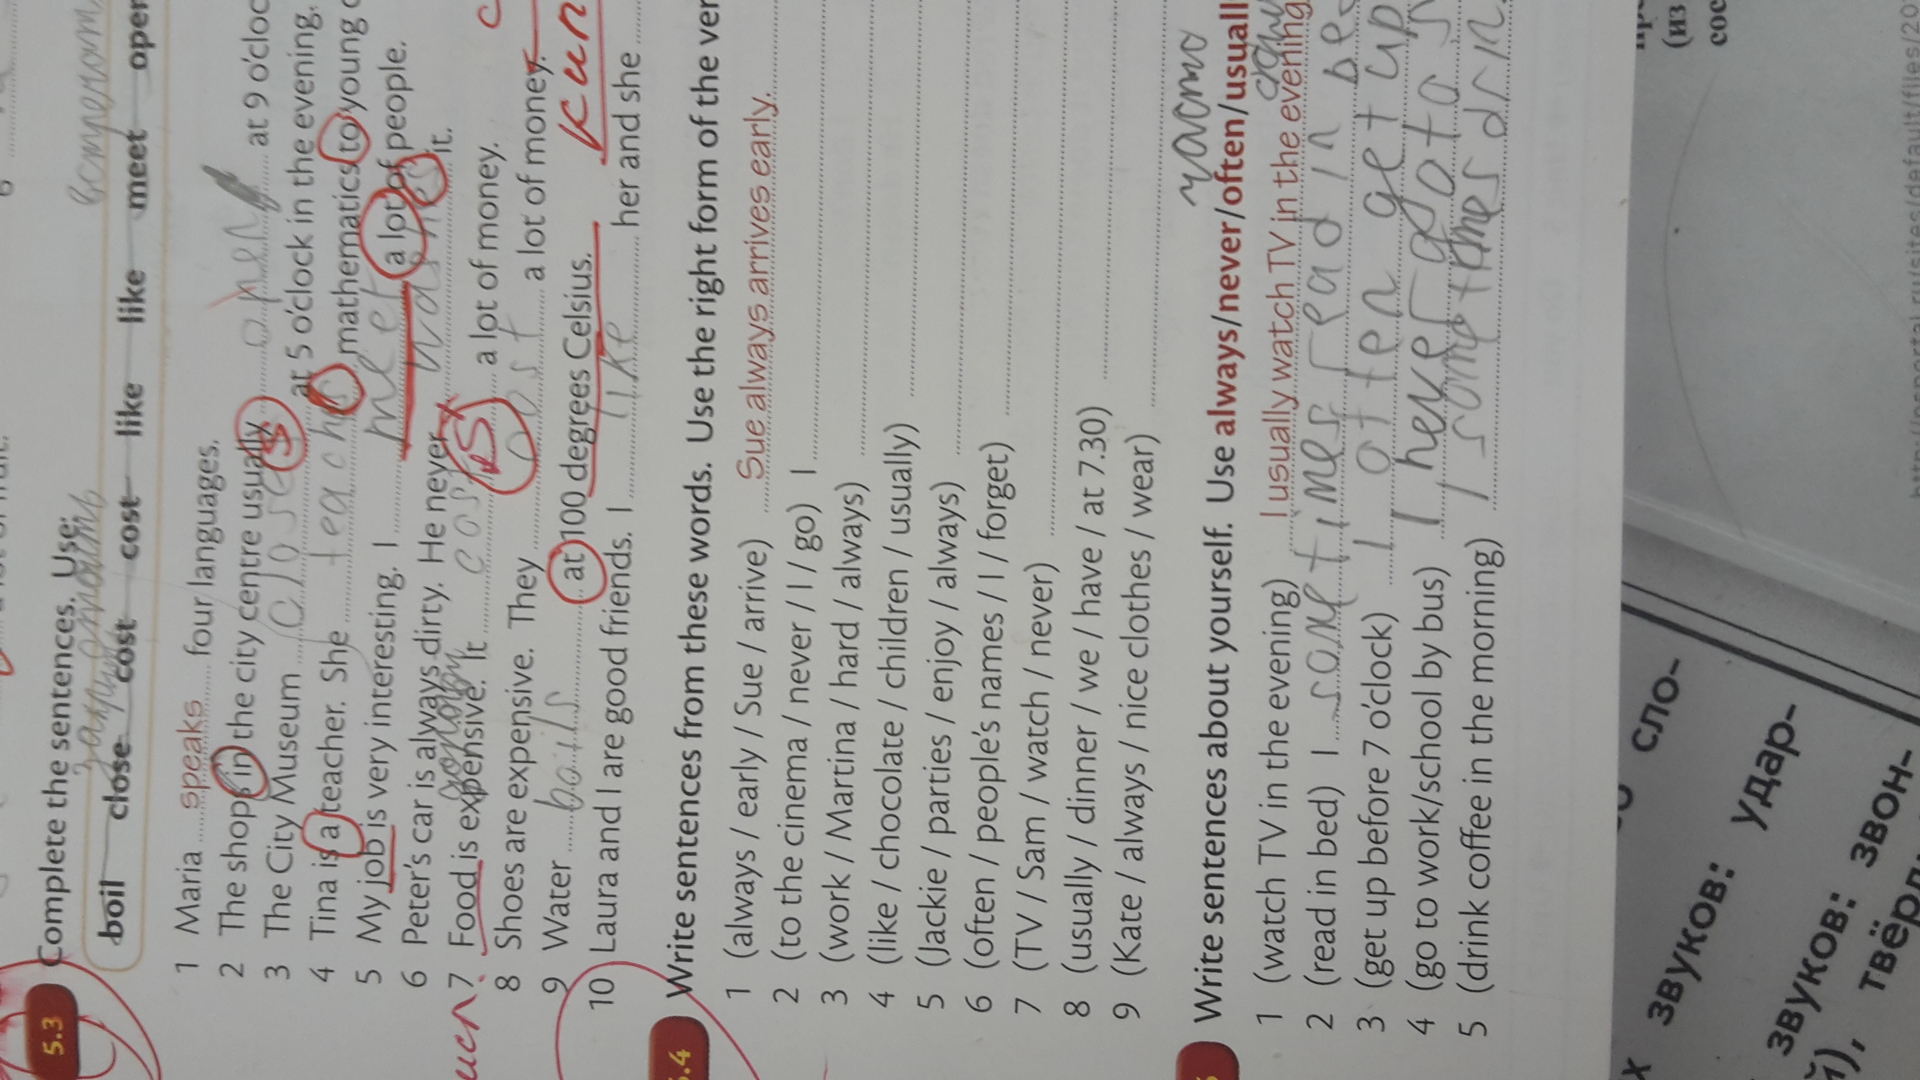 5.3 Complete the sentences. Use:
boil close cost cost like like meet open
1 Maria speaks four languages.
2 The shops in the city centre usually open at 9 o'cloc
3 The City Museum closes at 5 o'clock in the evening.
4 Tina is a teacher. She teaches mathematics to young c
5 My job is very interesting. I meet a lot of people.
6 Peter's car is always dirty. He never washes it.
7 Food is expensive. It costs a lot of money.
8 Shoes are expensive. They cost a lot of money.
9 Water boils at 100 degrees Celsius.
10 Laura and I are good friends. I like her and she
5.4 Write sentences from these words. Use the right form of the ver
1 (always / early / Sue / arrive) Sue always arrives early.
2 (to the cinema / never / I / go) I
3 (work / Martina / hard / always)
4 (like / chocolate / children / usually)
5 (Jackie / parties / enjoy / always)
6 (often / people's names / I / forget)
7 (TV / Sam / watch / never)
8 (usually / dinner / we / have / at 7.30)
9 (Kate / always / nice clothes / wear)
часто
Write sentences about yourself. Use always/never/often/usuall
1 (watch TV in the evening) I usually watch TV in the evening
2 (read in bed) I sometimes read in bed
3 (get up before 7 o'clock) I often get up
4 (go to work/school by bus) I never go to s
5 (drink coffee in the morning) I sometimes drin
сло-
х звуков: удар-
звуков: звон-
й), твёрд
(из
сос